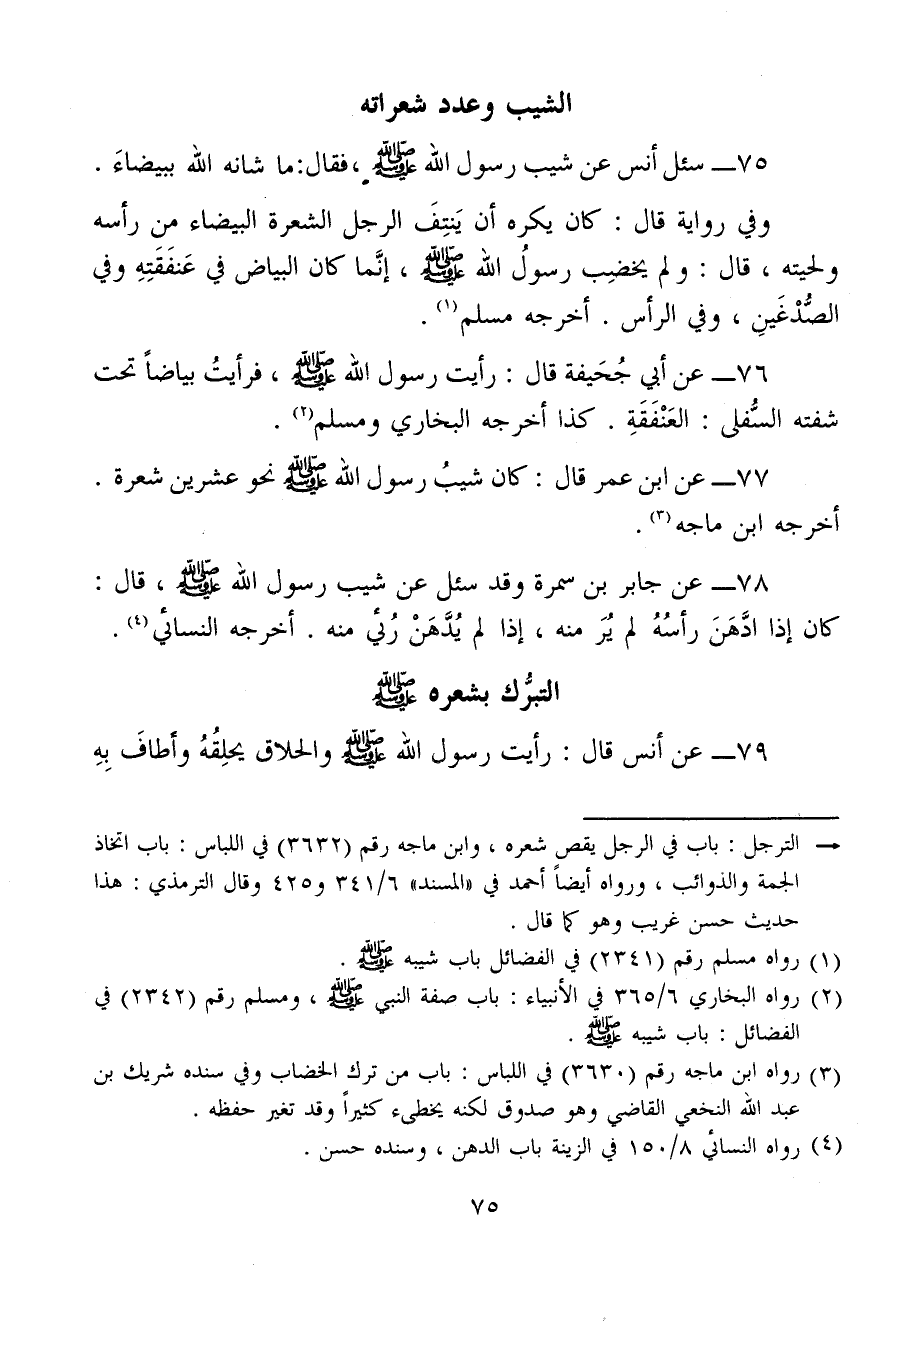 الشيب وعدد شعراته
٧٥ــ سئل أنس عن شيب رسول الله ﷺ ، فقال: ما شانه الله ببيضاءَ .
وفي رواية قال : كان يكره أن يَنتِفَ الرجل الشعرة البيضاء من رأسه
ولحيته ، قال : ولم يخضِب رسولُ الله ﷺ ، إنَّما كان البياض في عَنفَقَتِهِ وفي
الصُّدْغَينِ ، وفي الرأس . أخرجه مسلم(١) .
٧٦ــ عن أبي جُحَيفة قال : رأيت رسول الله ﷺ ، فرأيتُ بياضاً تحت
شفته السُّفلى : العَنْفَقَةِ . كذا أخرجه البخاري ومسلم(٢) .
٧٧ــ عن ابن عمر قال : كان شيبُ رسول الله ﷺ نحو عشرين شعرة .
أخرجه ابن ماجه(٣) .
٧٨ــ عن جابر بن سمرة وقد سئل عن شيب رسول الله ﷺ ، قال :
كان إذا ادَّهَنَ رأسُهُ لم يُرَ منه ، إذا لم يُدَّهَنْ رُئي منه . أخرجه النسائي(٤) .
التبرُّك بشعره ﷺ
٧٩ــ عن أنس قال : رأيت رسول الله ﷺ والحلاق يحلِقُهُ وأطافَ بِهِ
← الترجل : باب في الرجل يقص شعره ، وابن ماجه رقم (٣٦٣٢) في اللباس : باب اتخاذ
الجمة والذوائب ، ورواه أيضاً أحمد في «المسند» ٣٤١/٦ و٤٢٥ وقال الترمذي : هذا
حديث حسن غريب وهو كما قال .
(١) رواه مسلم رقم (٢٣٤١) في الفضائل باب شيبه ﷺ .
(٢) رواه البخاري ٣٦٥/٦ في الأنبياء : باب صفة النبي ﷺ ، ومسلم رقم (٢٣٤٢) في
الفضائل : باب شيبه ﷺ .
(٣) رواه ابن ماجه رقم (٣٦٣٠) في اللباس : باب من ترك الخضاب وفي سنده شريك بن
عبد الله النخعي القاضي وهو صدوق لكنه يخطىء كثيراً وقد تغير حفظه .
(٤) رواه النسائي ١٥٠/٨ في الزينة باب الدهن ، وسنده حسن .
٧٥